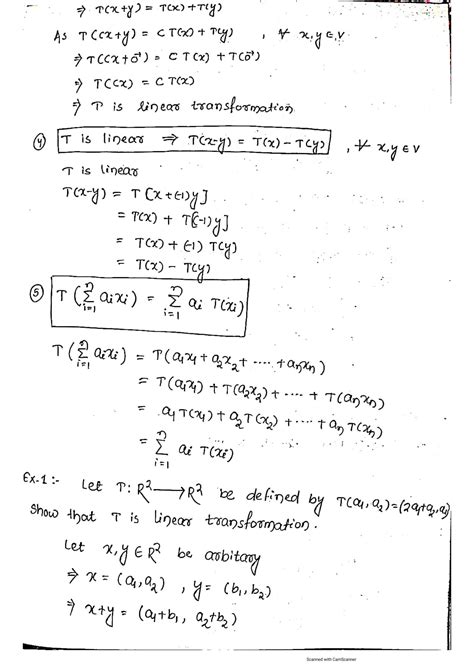 ⇒ T(x+y) = T(x) + T(y)
As T(cx+y) = c T(x) + T(y) , ∀ x, y ∈ V
⇒ T(cx+0⃗) = c T(x) + T(0⃗)
⇒ T(cx) = c T(x)
⇒ T is linear transformation
④ T is linear ⇒ T(x-y) = T(x) - T(y) , ∀ x, y ∈ V
T is linear
T(x-y) = T[x+(-1)y]
= T(x) + T[(-1)y]
= T(x) + (-1) T(y)
= T(x) - T(y)
⑤ T(∑ⁿᵢ₌₁ aᵢxᵢ) = ∑ⁿᵢ₌₁ aᵢ T(xᵢ)
T(∑ⁿᵢ₌₁ aᵢxᵢ) = T(a₁x₁ + a₂x₂ + ---- + aₙxₙ)
= T(a₁x₁) + T(a₂x₂) + ---- + T(aₙxₙ)
= a₁T(x₁) + a₂T(x₂) + ---- + aₙT(xₙ)
= ∑ⁿᵢ₌₁ aᵢ T(xᵢ)
Ex-1 :- Let T: R² → R² be defined by T(a₁, a₂) = (2a₁+a₂, a₁)
Show that T is linear transformation.
Let x, y ∈ R² be arbitary
⇒ x = (a₁, a₂) , y = (b₁, b₂)
⇒ x+y = (a₁+b₁, a₂+b₂)
Scanned with CamScanner